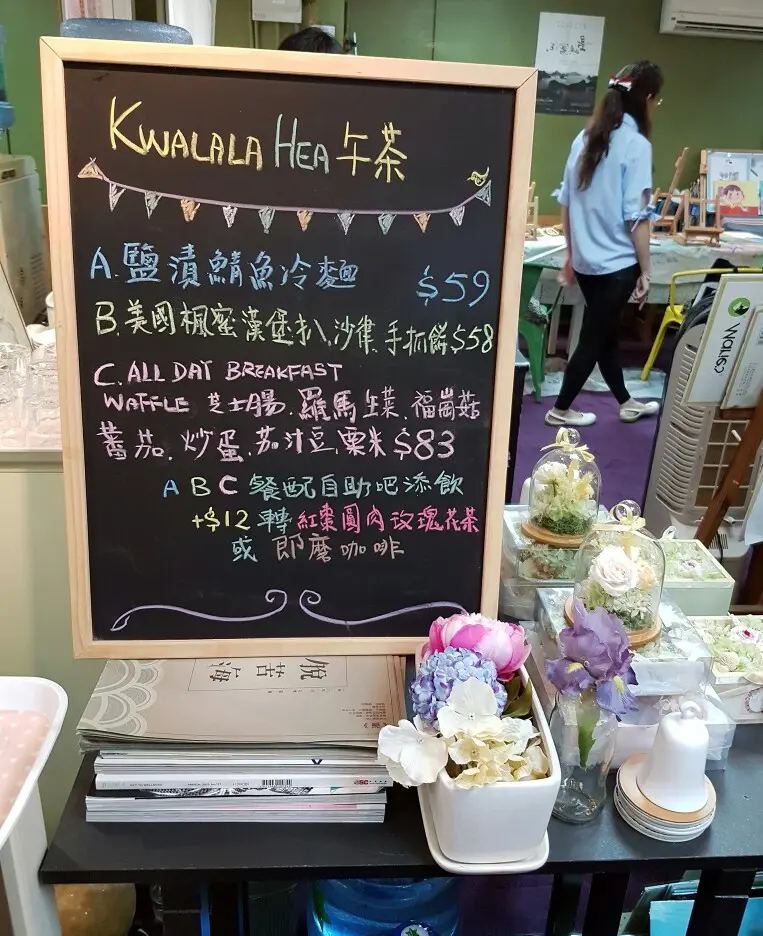 KWALALA HEA 午茶
A. 鹽漬鯖魚冷麵 $59
B. 美國楓蜜漢堡扒, 沙律, 手抓餅 $58
C. ALL DAY BREAKFAST
WAFFLE 芝士腸. 羅馬生菜. 福崗菇
蕃茄. 炒蛋. 茄汁豆. 粟米 $83
A B C 餐配自助吧添飲
+$12 轉 紅棗圓肉玫瑰花茶
或 即磨咖啡
苦海